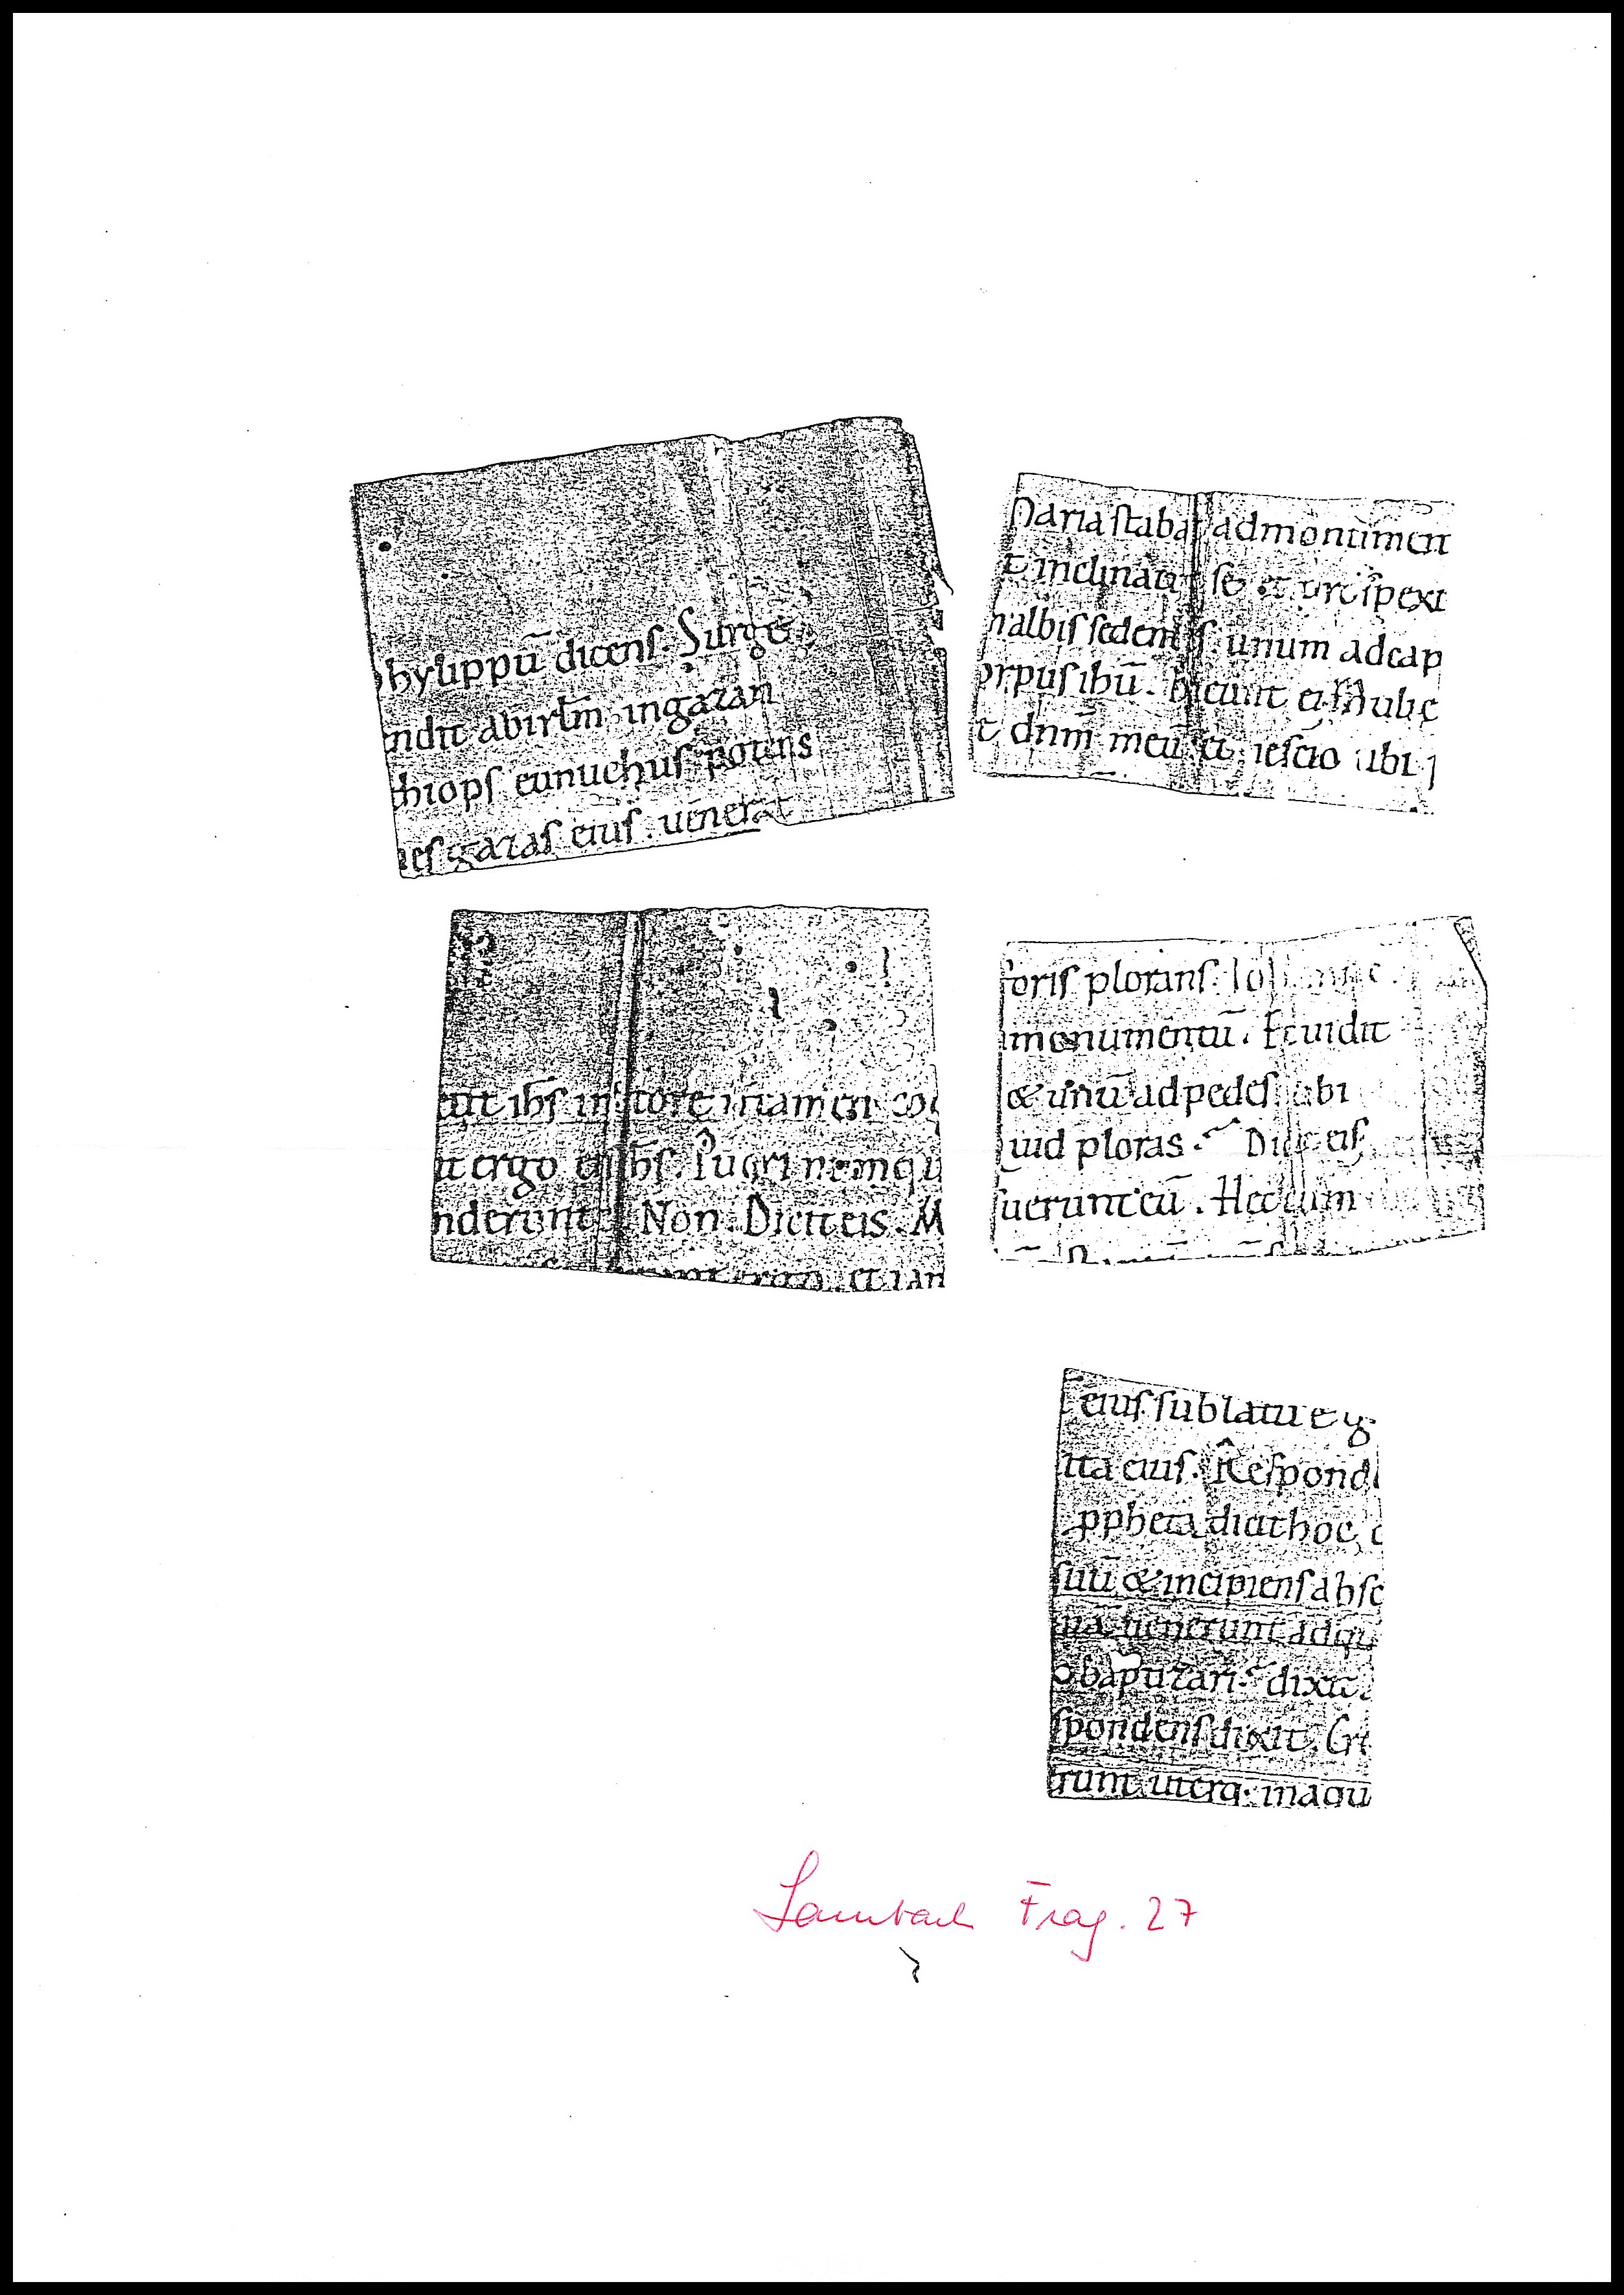 hylippū dicens. Surge
ndit abirl̄m ingazan
thiops eunuchus potens
es gazas eius. uenerat
Maria stabat admonumen
t inclinauit se et prospexi
nalbis sedentes. unum adcap
orpus ihū. Dicunt ei Mulie
t dn̄m meū et nescio ubi p
tit ih̄s in litore n tamen co
it ergo eis ih̄s. Pueri nūmqu
nderunt ei Non. Dicit eis. M
runt ergo. et iam
foris plorans.
monumentū. Et uidit
& unū ad pedes ubi
uid ploras. Dicit eis
suerunt eū. Hec cum
eius sublatū e g
ita eius. Respond
ppheta dicit hoc. d
suū & incipiens absc
uiā. uenerunt adqu
baptizari. dixit.
spondens dixit. Cr
runt uterq; inaqu
Lambach Frag. 27